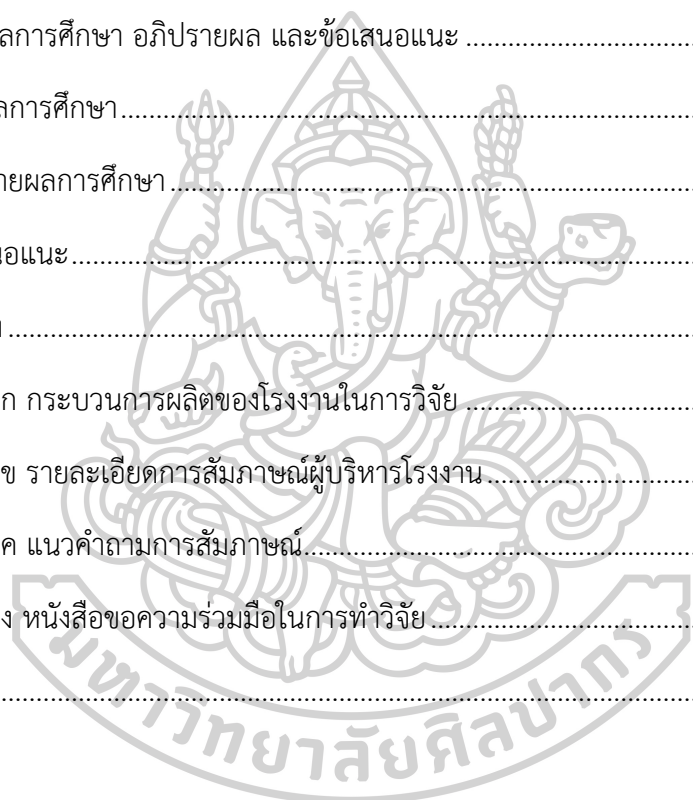 ลการศึกษา อภิปรายผล และข้อเสนอแนะ ........................................
ลการศึกษา ........................................
ายผลการศึกษา ........................................
นอแนะ ........................................
........................................
ก กระบวนการผลิตของโรงงานในการวิจัย ........................................
ข รายละเอียดการสัมภาษณ์ผู้บริหารโรงงาน ........................................
ค แนวคำถามการสัมภาษณ์ ........................................
ง หนังสือขอความร่วมมือในการทำวิจัย ........................................
........................................
มหาวิทยาลัยศิลปากร